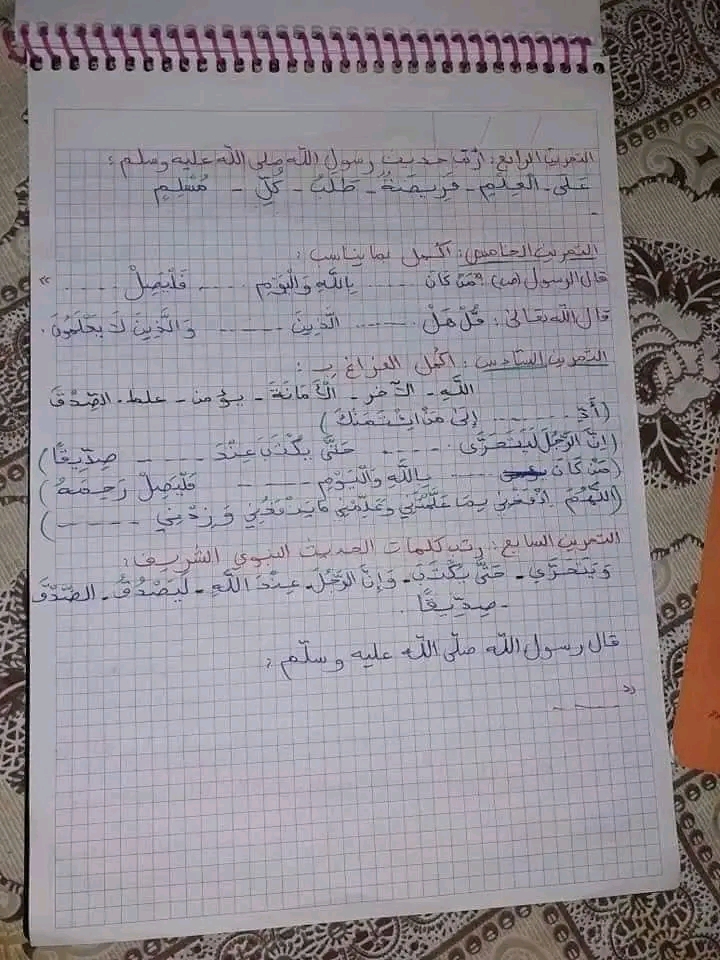 التمرين الرابع: أرتب حديث رسول الله صلى الله عليه وسلم:
عَلَى - الْعِلْمِ - فَرِيضَةٌ - طَلَبُ - كُلِّ - مُسْلِمٍ
-
التمرين الخامس: أكمل بما يناسب:
قال الرسول (ص) "مَنْ كَانَ ...... بِاللَّهِ وَالْيَوْمِ ...... فَلْيَصِلْ ...... "
قال الله تعالى: قُلْ هَلْ ...... الَّذِينَ ...... وَالَّذِينَ لَا يَعْلَمُونَ.
التمرين السادس: أكمل الفراغ بـ:
اللَّهِ - الآخر - الْأَمَانَةَ - يؤمن - علما - الصِّدْقَ
(أَدِّ ...... إِلَى مَنْ ائْتَمَنَكَ)
(إِنَّ الرَّجُلَ لَيَتَحَرَّى ...... حَتَّى يُكْتَبَ عِنْدَ ...... صِدِّيقًا)
(مَنْ كَانَ ...... بِاللَّهِ وَالْيَوْمِ ...... فَلْيَصِلْ رَحِمَهُ)
(اللَّهُمَّ انْفَعْنِي بِمَا عَلَّمْتَنِي وَعَلِّمْنِي مَا يَنْفَعُنِي وَزِدْنِي ......)
التمرين السابع: رتب كلمات الحديث النبوي الشريف:
وَيَتَحَرَّى - حَتَّى يُكْتَبَ - وَإِنَّ الرَّجُلَ - عِنْدَ اللَّهِ - لَيَصْدُقُ - الصِّدْقَ
- صِدِّيقًا.
قال رسول الله صلّى الله عليه وسلّم:
" ......